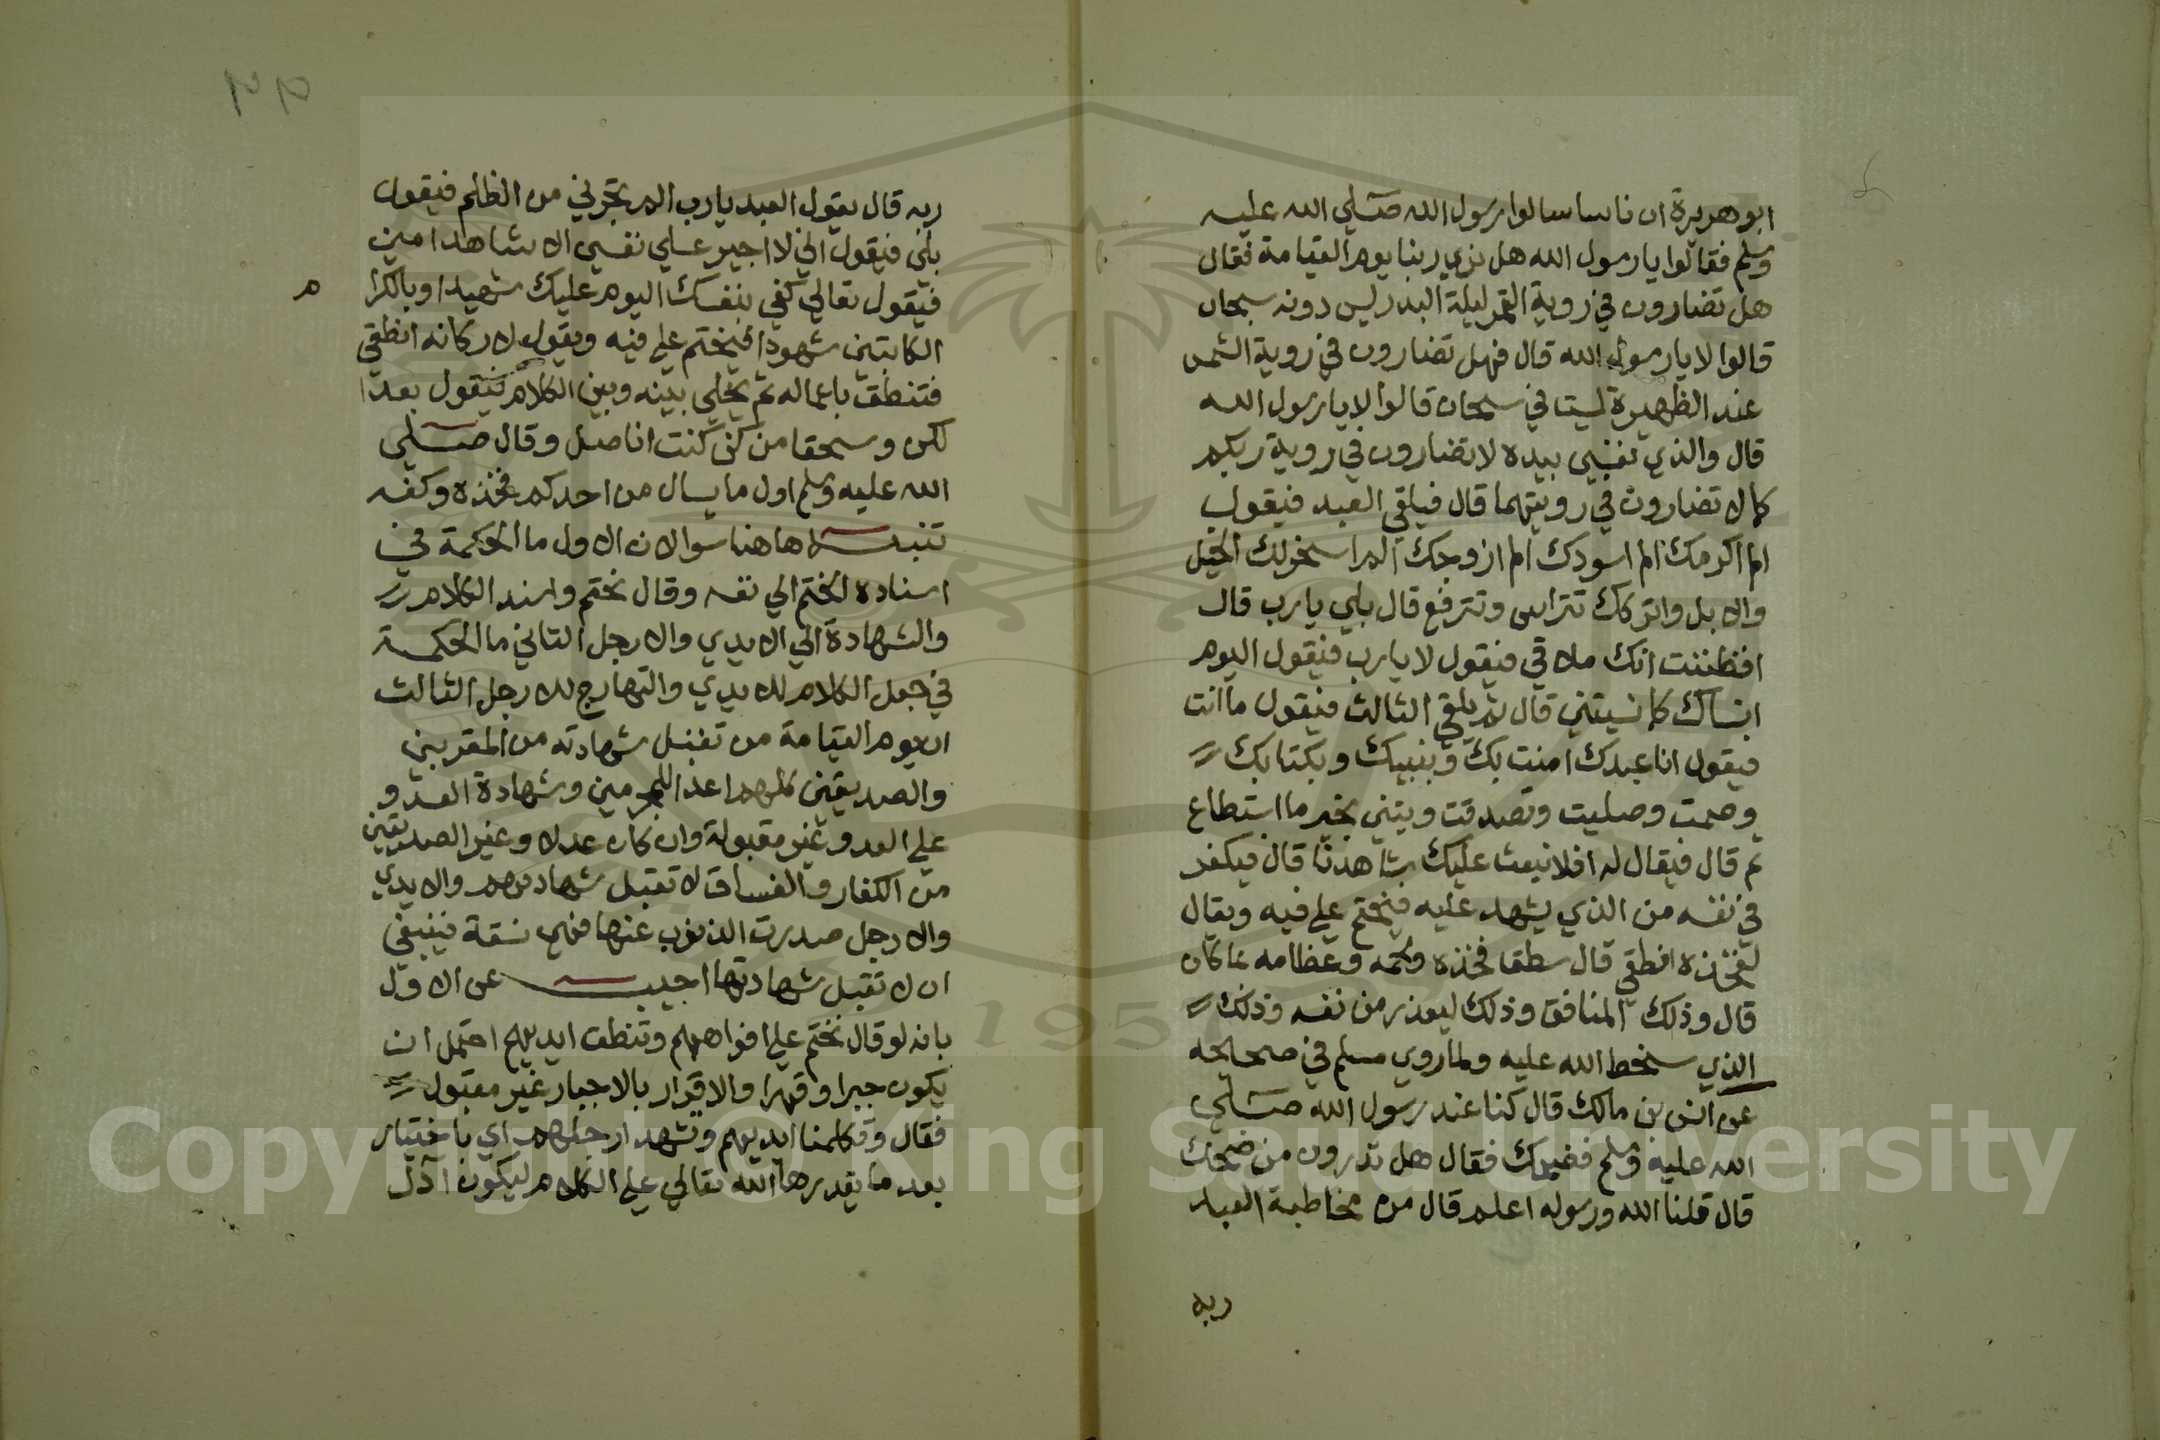 ابو هريرة ان ناسا سالوا رسول الله صلي الله عليه
وسلم فقالوا يا رسول الله هل نري ربنا يوم القيامة فقال
هل تضارون في روية القمر ليلة البدر ليس دونه سحاب
قالوا لا يا رسول الله قال فهل تضارون في روية الشمس
عند الظهيرة ليست في سحاب قالوا لا يا رسول الله
قال والذي نفسي بيده لا تضارون في روية ربكم
كما لا تضارون في رويتهما قال فيلقي العبد فيقول
الم اكرمك الم اسودك الم ازوجك الم اسخر لك الخيل
والابل واتركك تتراس وتترفع قال بلي يا رب قال
افظننت انك ملاقي فيقول لا يا رب فيقول اليوم
انساك كما نسيتني قال ثم يلقي الثالث فيقول ما انت
فيقول انا عبدك امنت بك وبنبيك وبكتابك
وصمت وصليت وتصدقت ويثني بخير ما استطاع
ثم قال فيقال له افلا نبعث عليك شاهدنا قال فيكفر
في نفسه من الذي يشهد عليه فيختم علي فيه ويقال
لفخذه انطقي قال فخذه ولحمه وعظامه بما كان
قال وذلك المنافق وذلك ليعذر من نفسه وذلك
الذي سخط الله عليه ولما روي مسلم في صحيحه
عن انس بن مالك قال كنا عند رسول الله صلي
الله عليه وسلم فضحك فقال هل تدرون من ضحك
قال قلنا الله ورسوله اعلم قال من مخاطبة العبد
ربه
ربه قال يقول العبد يا رب الم تجرني من الظلم فيقول
بلي فيقول اني لا اجير علي نفسي الا شاهدا مني
فيقول تعالي كفي بنفسك اليوم عليك شهيدا وبالكرا م
الكاتبين شهودا فيختم علي فيه ويقول لاركانه انطقي
فتنطق باعماله ثم يخلي بينه وبين الكلام فيقول بعدا
لكن وسحقا كنت اناضل وقال صلي
الله عليه وسلم اول ما يسال من احدكم فخذه وكفه
تنبيه هاهنا سوالان الاول ما الحكمة في
اسناده الختم الي نفسه وقال نختم واسند الكلام
والشهادة الي الايدي والارجل الثاني ما الحكمة
في جعل الكلام للايدي للارجل الثالث
ان يوم القيامة من تقبل شهادته من المقربين
والصديقين كلهم اعدا للمجرمين وشهادة العدو
علي العدو غير مقبولة وان كان عدلا وغير الصديقين
من الكفار والفساق لا تقبل شهادتهم والايدي
والارجل صدرت الذنوب عنها فهي فسقة فينبغي
ان لا تقبل شهادتها اجيب عن الاول
بانه لو قال نختم علي افواههم وتنطق ايديهم احتمل ان
يكون جبرا وقهرا والاقرار بالاجبار غير مقبول
فقال وتكلمنا ايديهم وتشهد ارجلهم اي باختيار
بعد ما يقدرها الله تعالي علي الكلام ليكون ادل
Copyright © King Saud University
1957